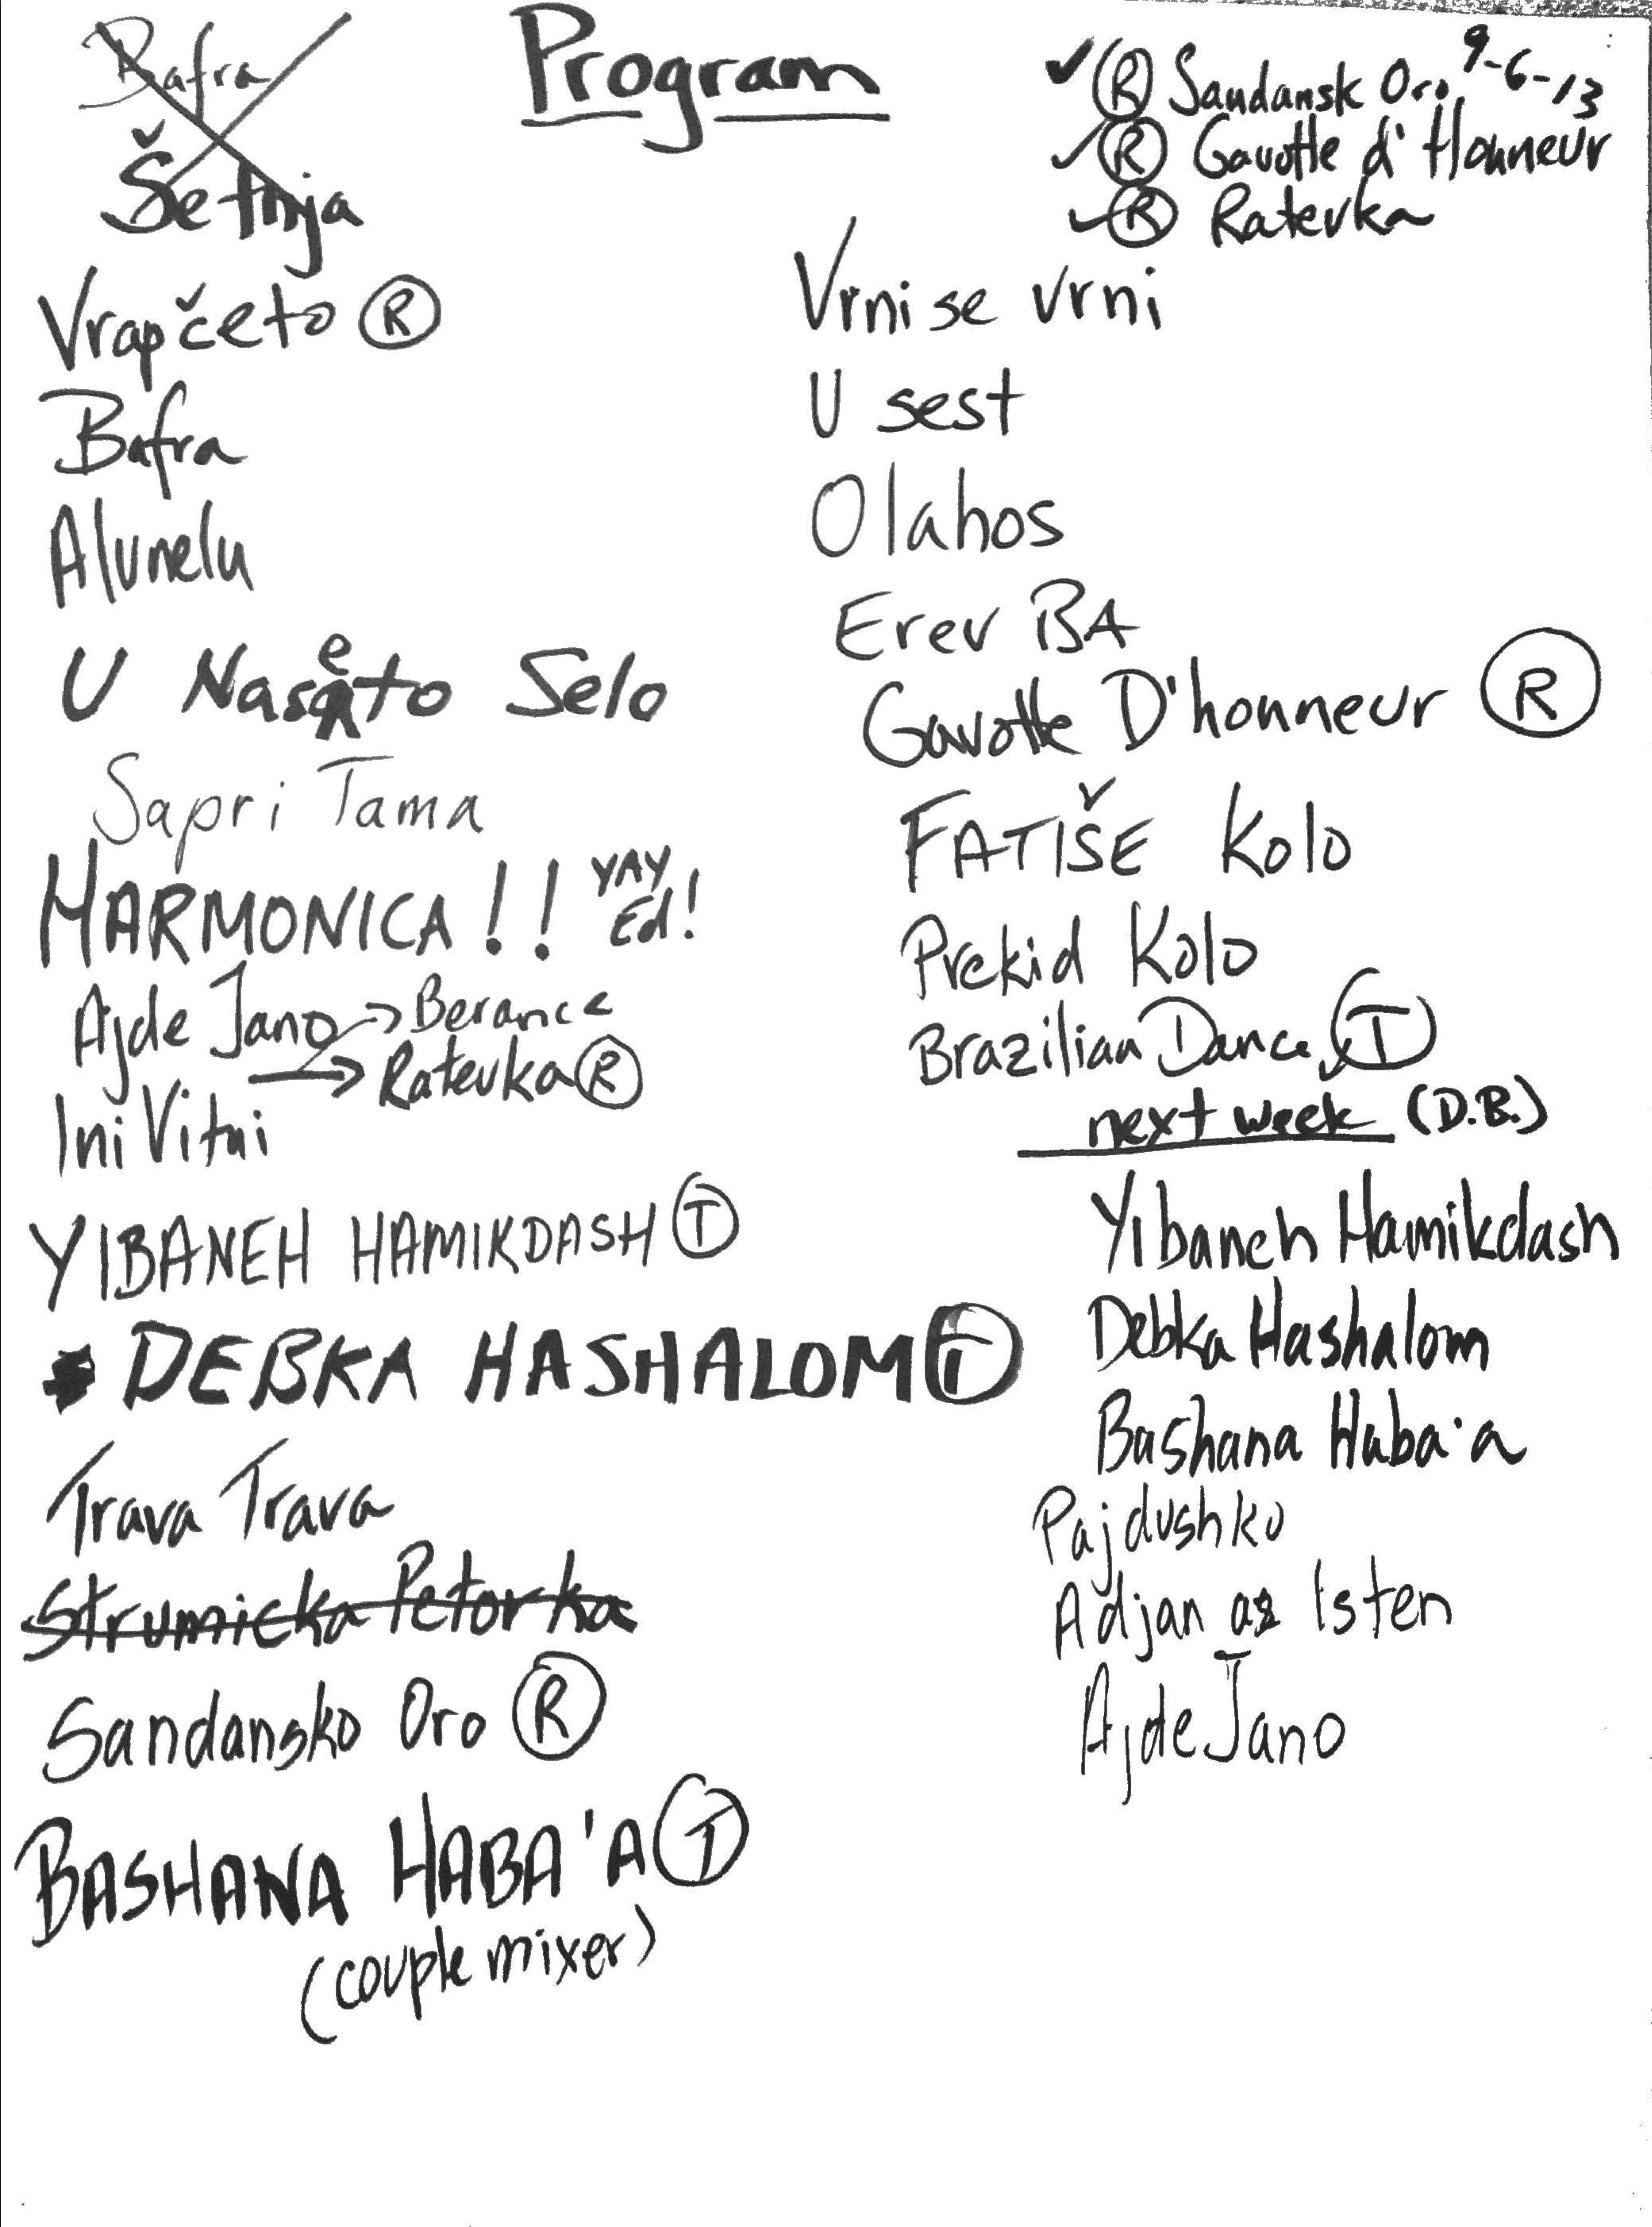 Program
9-6-13
Bafra
Šetnja
Vrapčeto Ⓡ
Bafra
Alunelu
U Naseto Selo
Sapri Tama
HARMONICA!! YAY Ed!
Ajde Jano → Berance
→ Ratevka Ⓡ
Ini Vitui
YIBANEH HAMIKDASH Ⓣ
DEBKA HASHALOM Ⓣ
Trava Trava
Strumicka Petorka
Sandansko Oro Ⓡ
BASHANA HABA'A Ⓣ
(couple mixer)
✓ Ⓡ Sandansk Oro
✓ Ⓡ Gavotte d'Honneur
✓ Ⓡ Ratevka
Vrni se vrni
U sest
Olahos
Erev BA
Gavotte D'honneur Ⓡ
FATIŠE Kolo
Prekid Kolo
Brazilian Dance Ⓣ
next week (D.B.)
Yibaneh Hamikdash
Debka Hashalom
Bashana Haba'a
Pajdushko
Adjan az Isten
Ajde Jano